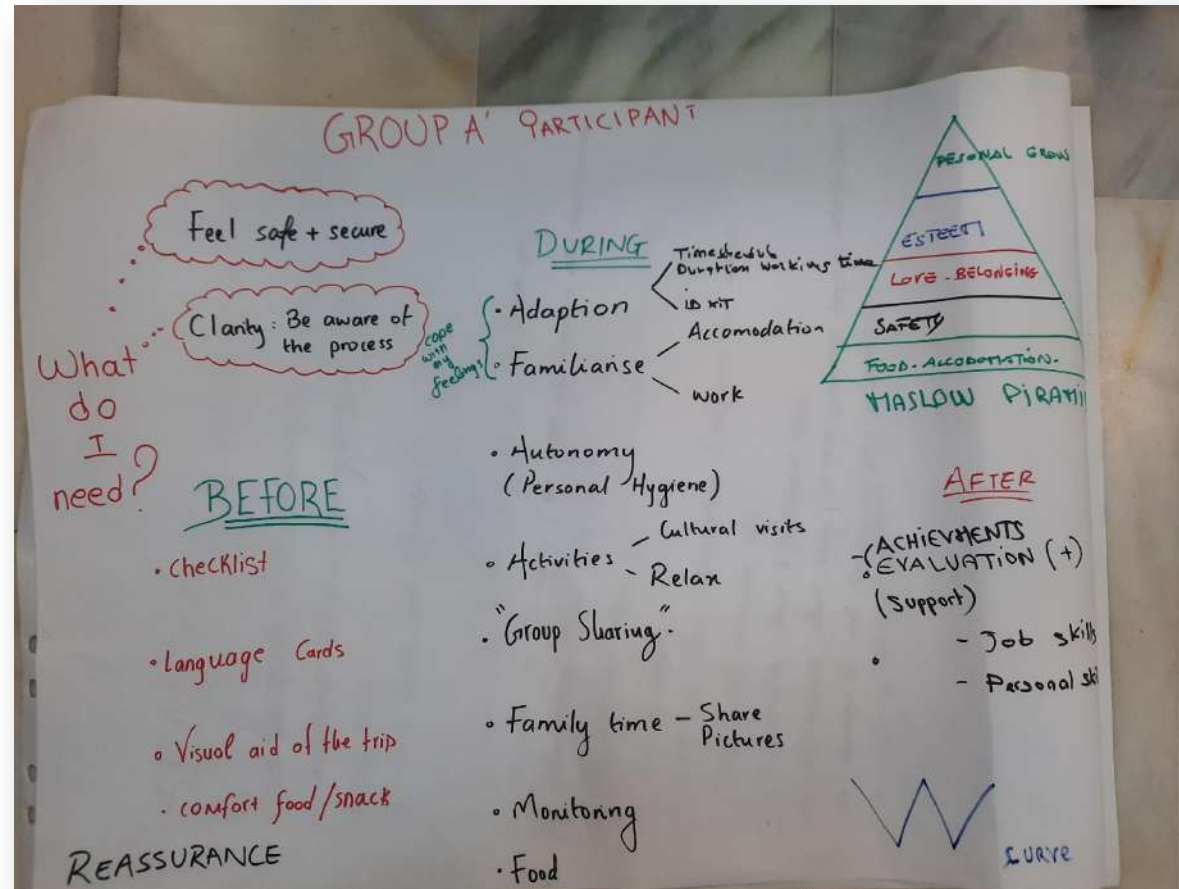 GROUP A' PARTICIPANT
Feel safe + secure
Clarity: Be aware of
the process
What
do
I
need?
BEFORE
• Checklist
• Language Cards
• Visual aid of the trip
• comfort food/snack
REASSURANCE
DURING
cope
with
my
feelings
• Adaption
Duration working time
• Familiarise
Accomodation
work
• Autonomy
(Personal Hygiene)
• Activities
- Cultural visits
- Relax
• "Group Sharing".
• Family time - Share
Pictures
• Monitoring
• Food
PESONAL GROW
ESTEEM
LOVE - BELONGING
SAFETY
FOOD - ACCODOMATION.
MASLOW PIRAMI
AFTER
ACHIEVMENTS
EVALUATION (+)
(Support)
- Job skills
- Personal ski
W
CURVE